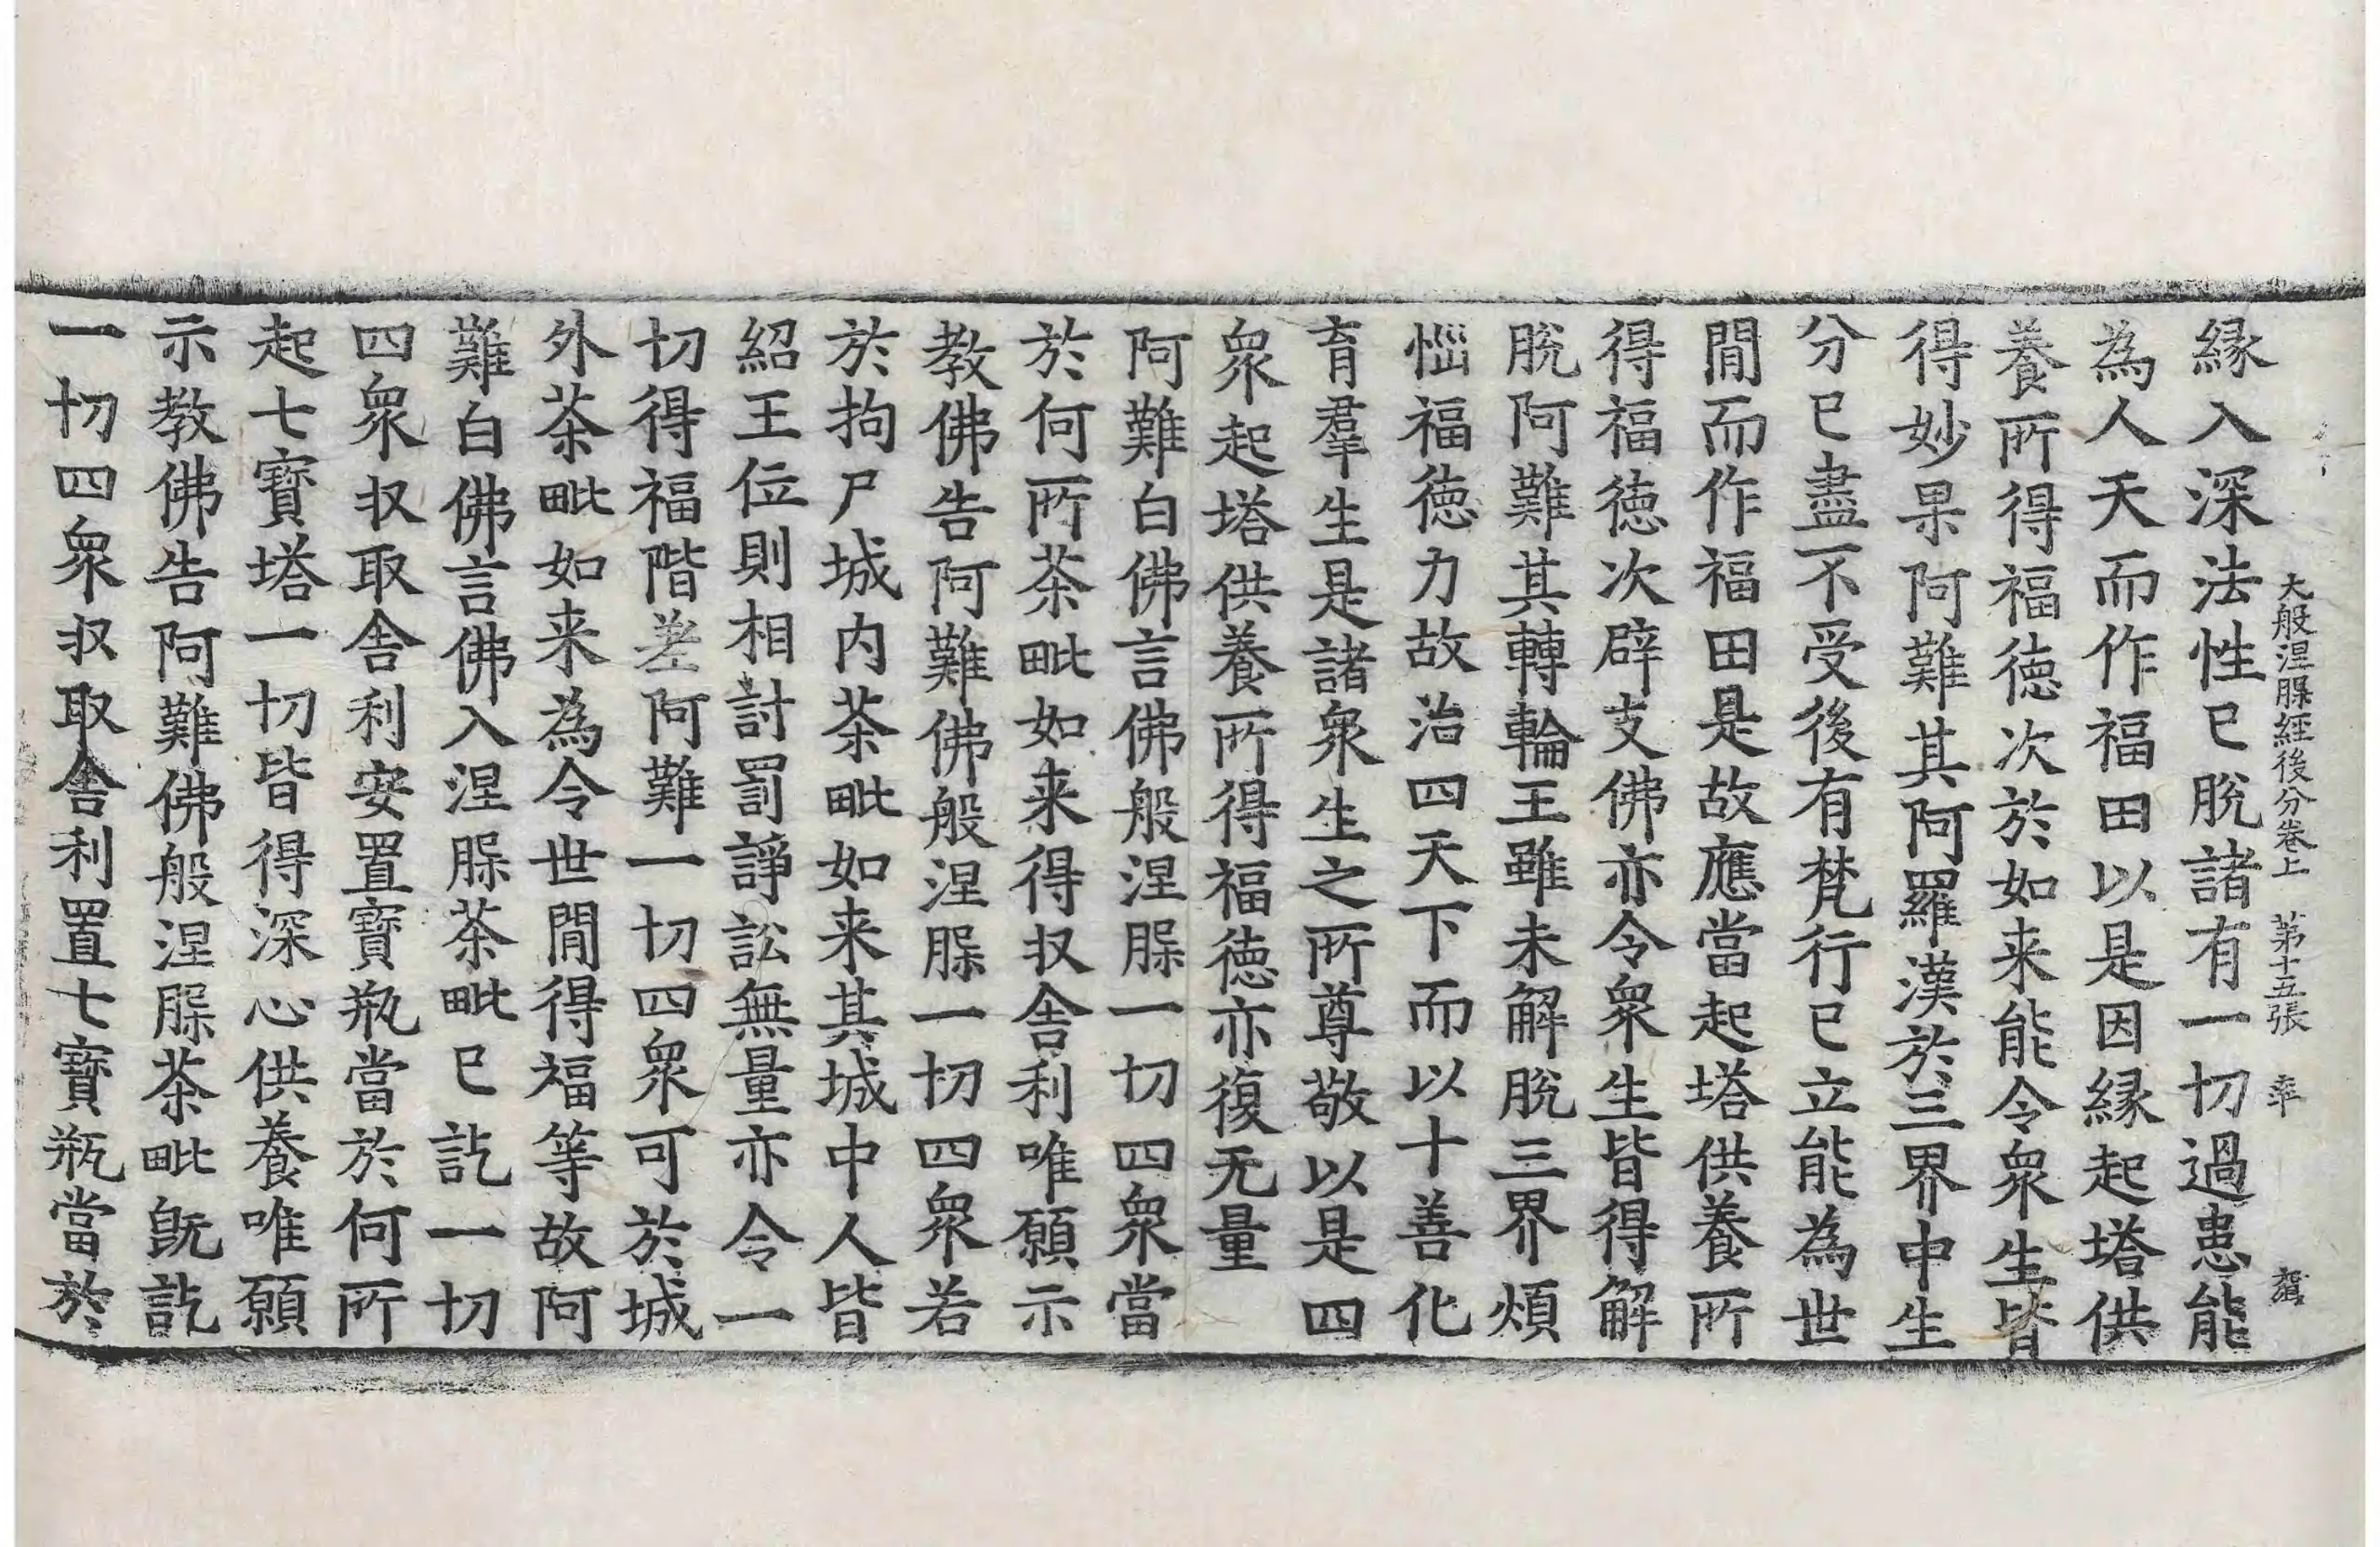 大般涅槃經後分卷上　第十五張　率
縁入深法性已脫諸有一切過患能
為人天而作福田以是因縁起塔供
養所得福徳次於如来能令衆生皆
得妙果阿難其阿羅漢於三界中生
分已盡不受後有梵行已立能為世
間而作福田是故應當起塔供養所
得福徳次辟支佛亦令衆生皆得解
脫阿難其轉輪王雖未解脫三界煩
惱福徳力故治四天下而以十善化
育羣生是諸衆生之所尊敬以是四
衆起塔供養所得福徳亦復无量
阿難白佛言佛般涅槃一切四衆當
於何所茶毗如来得収舎利唯願示
教佛告阿難佛般涅槃一切四衆若
於拘尸城內茶毗如来其城中人皆
紹王位則相討罰諍訟無量亦令一
切得福階差阿難一切四衆可於城
外茶毗如来為令世間得福等故阿
難白佛言佛入涅槃茶毗已訖一切
四衆収取舎利安置寶瓶當於何所
起七寶塔一切皆得深心供養唯願
示教佛告阿難佛般涅槃茶毗既訖
一切四衆収取舎利置七寶瓶當於